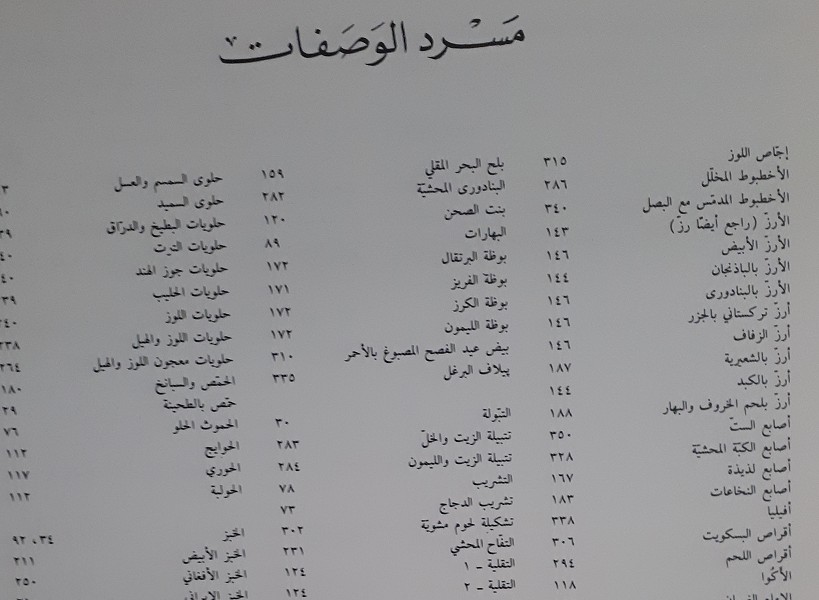 مَسْرد الوَصَفات
إجّاص اللوز
الأخطبوط المخلّل
الأخطبوط المدمّس مع البصل
الأرزّ (راجع أيضًا رزّ)
الأرزّ الأبيض
الأرزّ بالباذنجان
الأرزّ بالبنادورى
أرزّ تركستاني بالجزر
أرزّ الزفاف
أرزّ بالشعيرية
أرزّ بالكبد
أرزّ بلحم الخروف والبهار
أصابع الستّ
أصابع الكبّة المحشيّة
أصابع لذيذة
أصابع النخاعات
أفيليا
أقراص البسكويت
أقراص اللحم
الأكُوا
٣١٥
٢٨٦
٣٤٠
١٤٣
١٤٦
١٤٤
١٤٦
١٤٦
١٤٦
١٨٧
١٤٤
١٨٨
٣٥٠
٣٢٨
١٦٧
١٨٣
٣٣٨
٣٠٦
٢٩٤
١١٨
بلح البحر المقلي
البنادورى المحشيّة
بنت الصحن
البهارات
بوظة البرتقال
بوظة الفريز
بوظة الكرز
بوظة الليمون
بيض عيد الفصح المصبوغ بالأحمر
پيلاف البرغل
التبّولة
تتبيلة الزيت والخلّ
تتبيلة الزيت والليمون
التشريب
تشريب الدجاج
تشكيلة لحوم مشويّة
التفّاح المحشي
التقلية ـ ١
التقلية ـ ٢
١٥٩
٢٨٢
١٢٠
٨٩
١٧٢
١٧١
١٧٢
١٧٢
٣١٠
٣٣٥
٣٠
٢٨٣
٢٨٤
٧٨
٧٣
٣٠٢
٢٣١
١٢٤
١٢٤
حلوى السمسم والعسل
حلوى السميد
حلويات البطيخ والدرّاق
حلويات الترت
حلويات جوز الهند
حلويات الحليب
حلويات اللوز
حلويات اللوز والهيل
حلويات معجون اللوز والهيل
الحمّص والسبانخ
حمّص بالطحينة
الحموث الحلو
الحوايج
الحوري
الحولبة
الخبز
الخبز الأبيض
الخبز الأفغاني
الخبز الإيراني
١٨٠
٢٩
٧٦
١١٢
١١٧
١١٢
٣٤، ٩٢
٢١١
٢٥٠